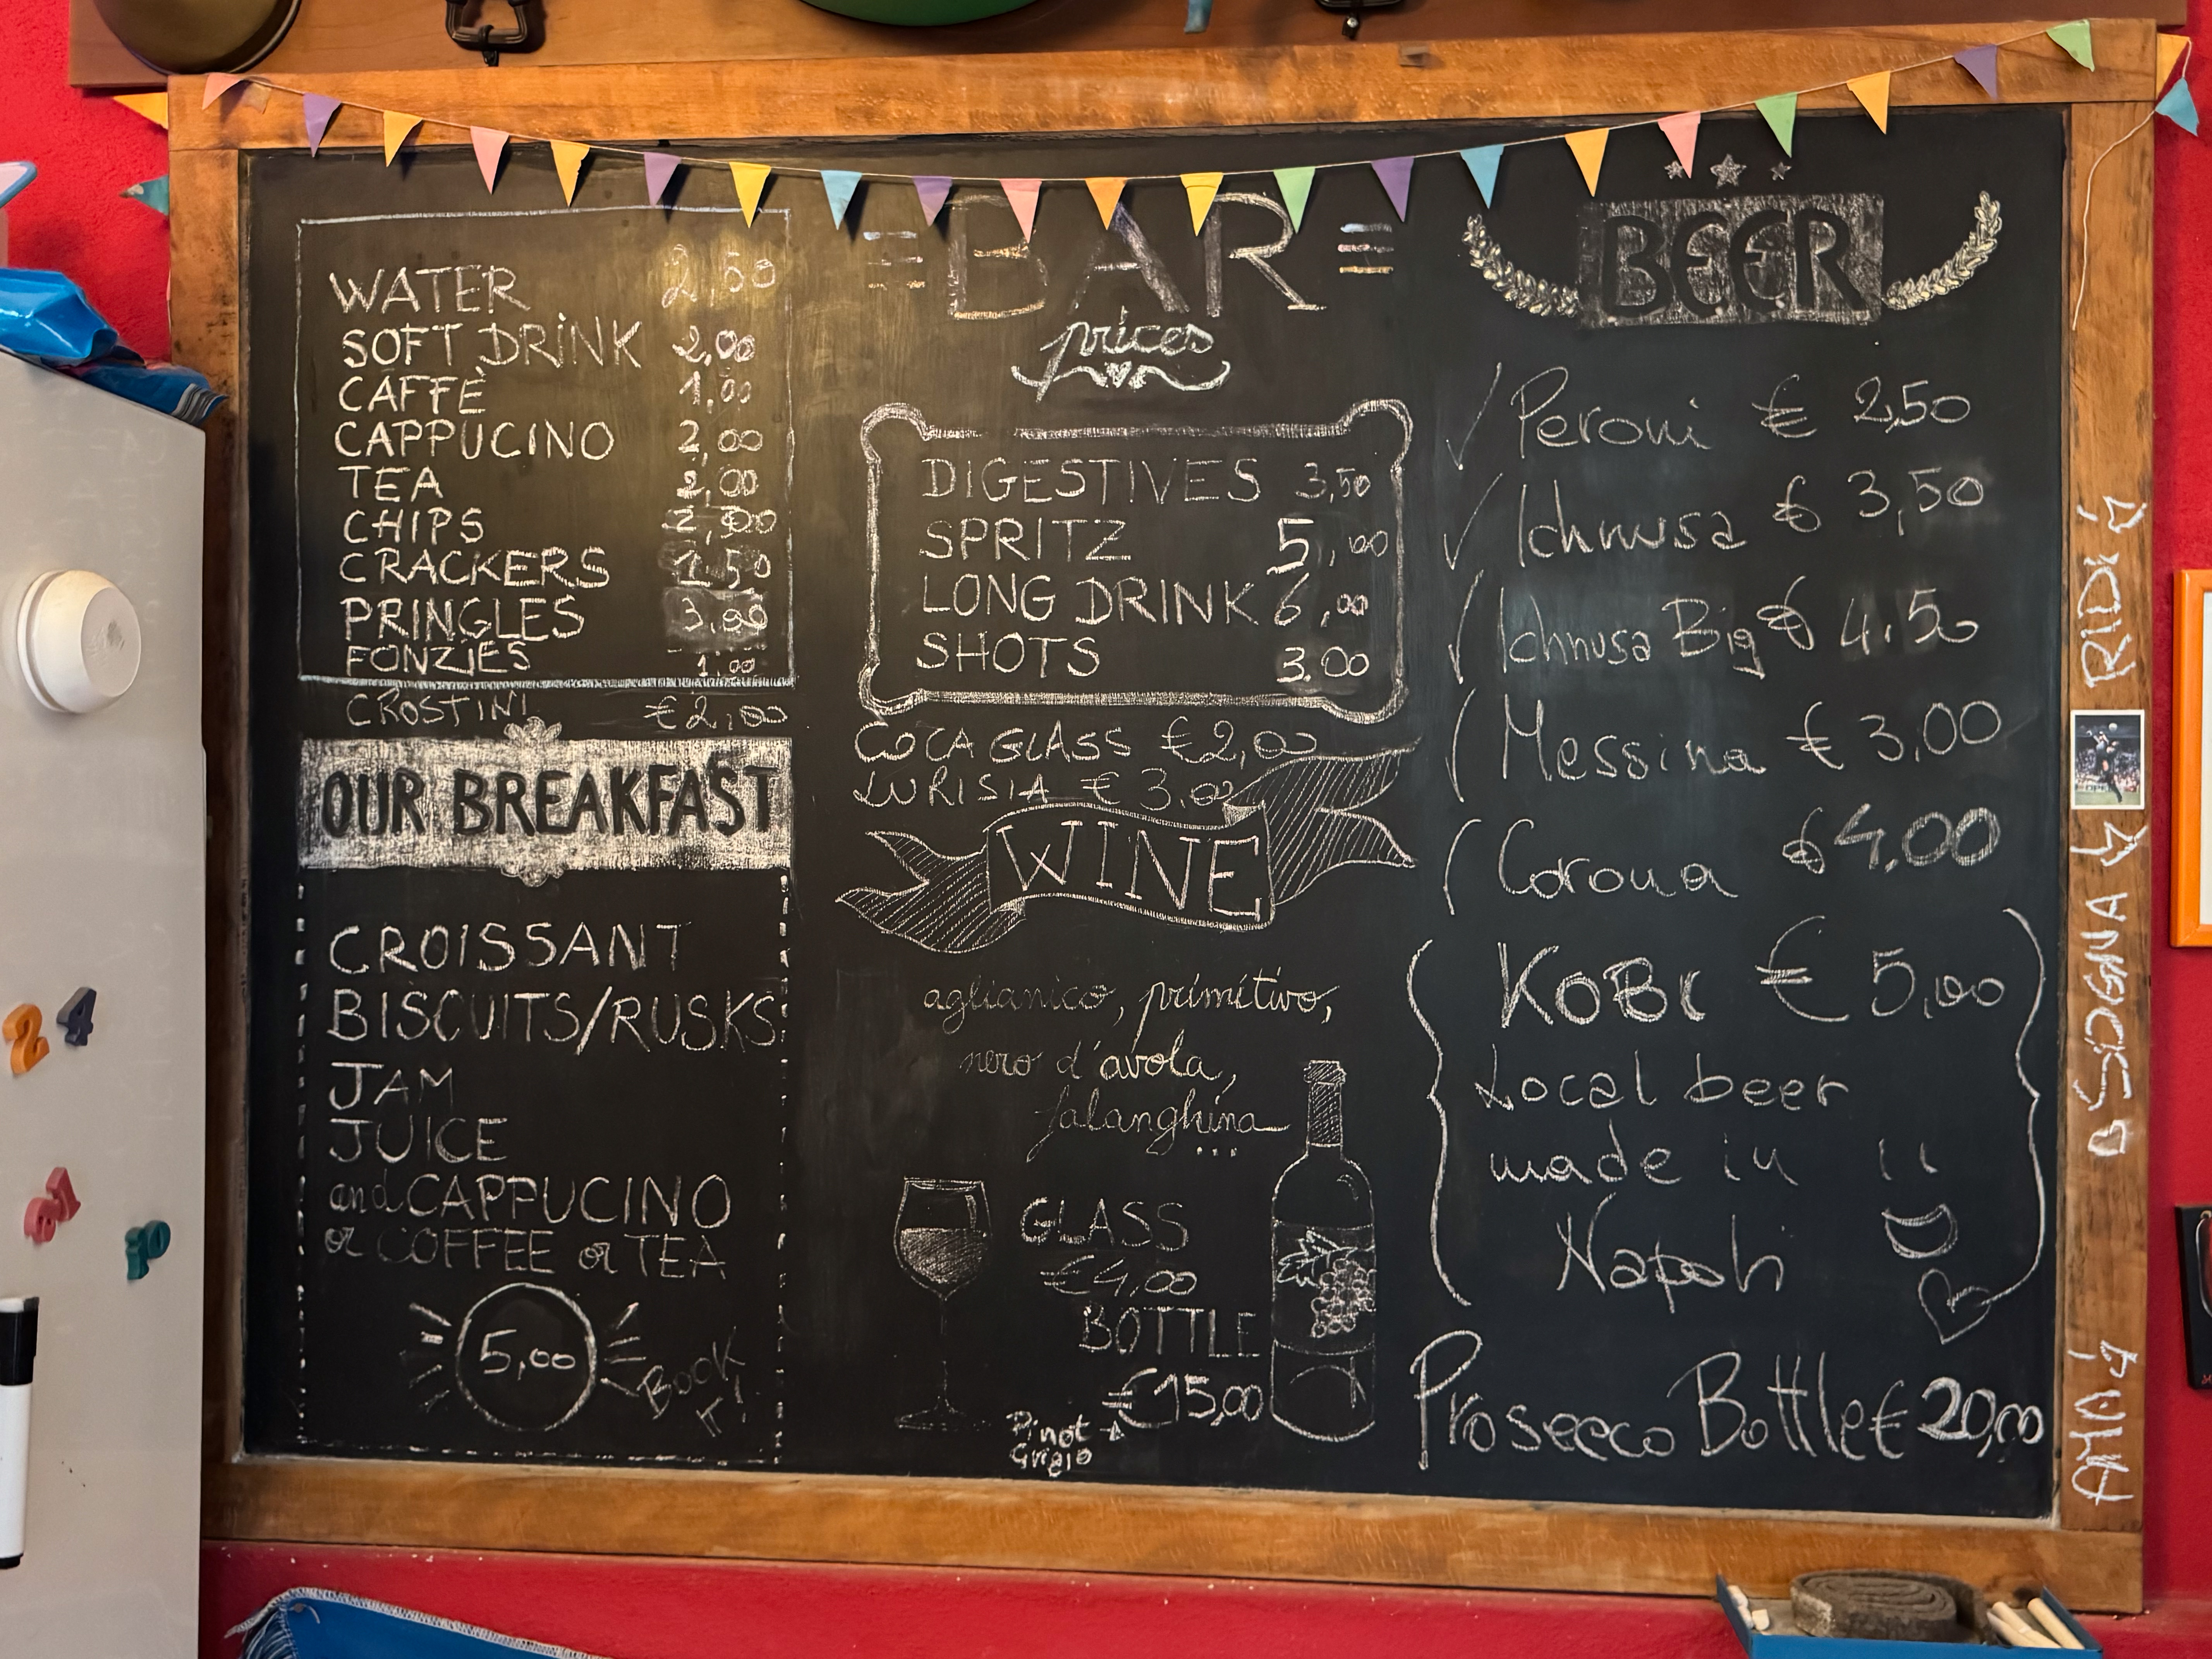 WATER 2,50
SOFT DRINK 2,00
CAFFÈ 1,00
CAPPUCINO 2,00
TEA 2,00
CHIPS
CRACKERS 1,50
PRINGLES 3,00
FONZIES 1,00
CROSTINI €2,00
OUR BREAKFAST
CROISSANT
BISCUITS/RUSKS
JAM
JUICE
and CAPPUCINO
or COFFEE or TEA
5,00
BOOK
IT!
BAR
prices
DIGESTIVES 3,50
SPRITZ 5,00
LONG DRINK 6,00
SHOTS 3.00
COCA GLASS €2,00
LURISIA €3,00
WINE
aglianico, primitivo,
nero d'avola,
falanghina
...
GLASS
€4,00
BOTTLE
€15,00
Pinot
Grigio
BEER
Peroni € 2,50
Ichnusa € 3,50
Ichnusa Big € 4.50
Messina € 3,00
Corona € 4,00
KOBI € 5,00
Local beer
made in
Napoli
Prosecco Bottle € 20,00
AMA
SOGNA
RIDI
2
4